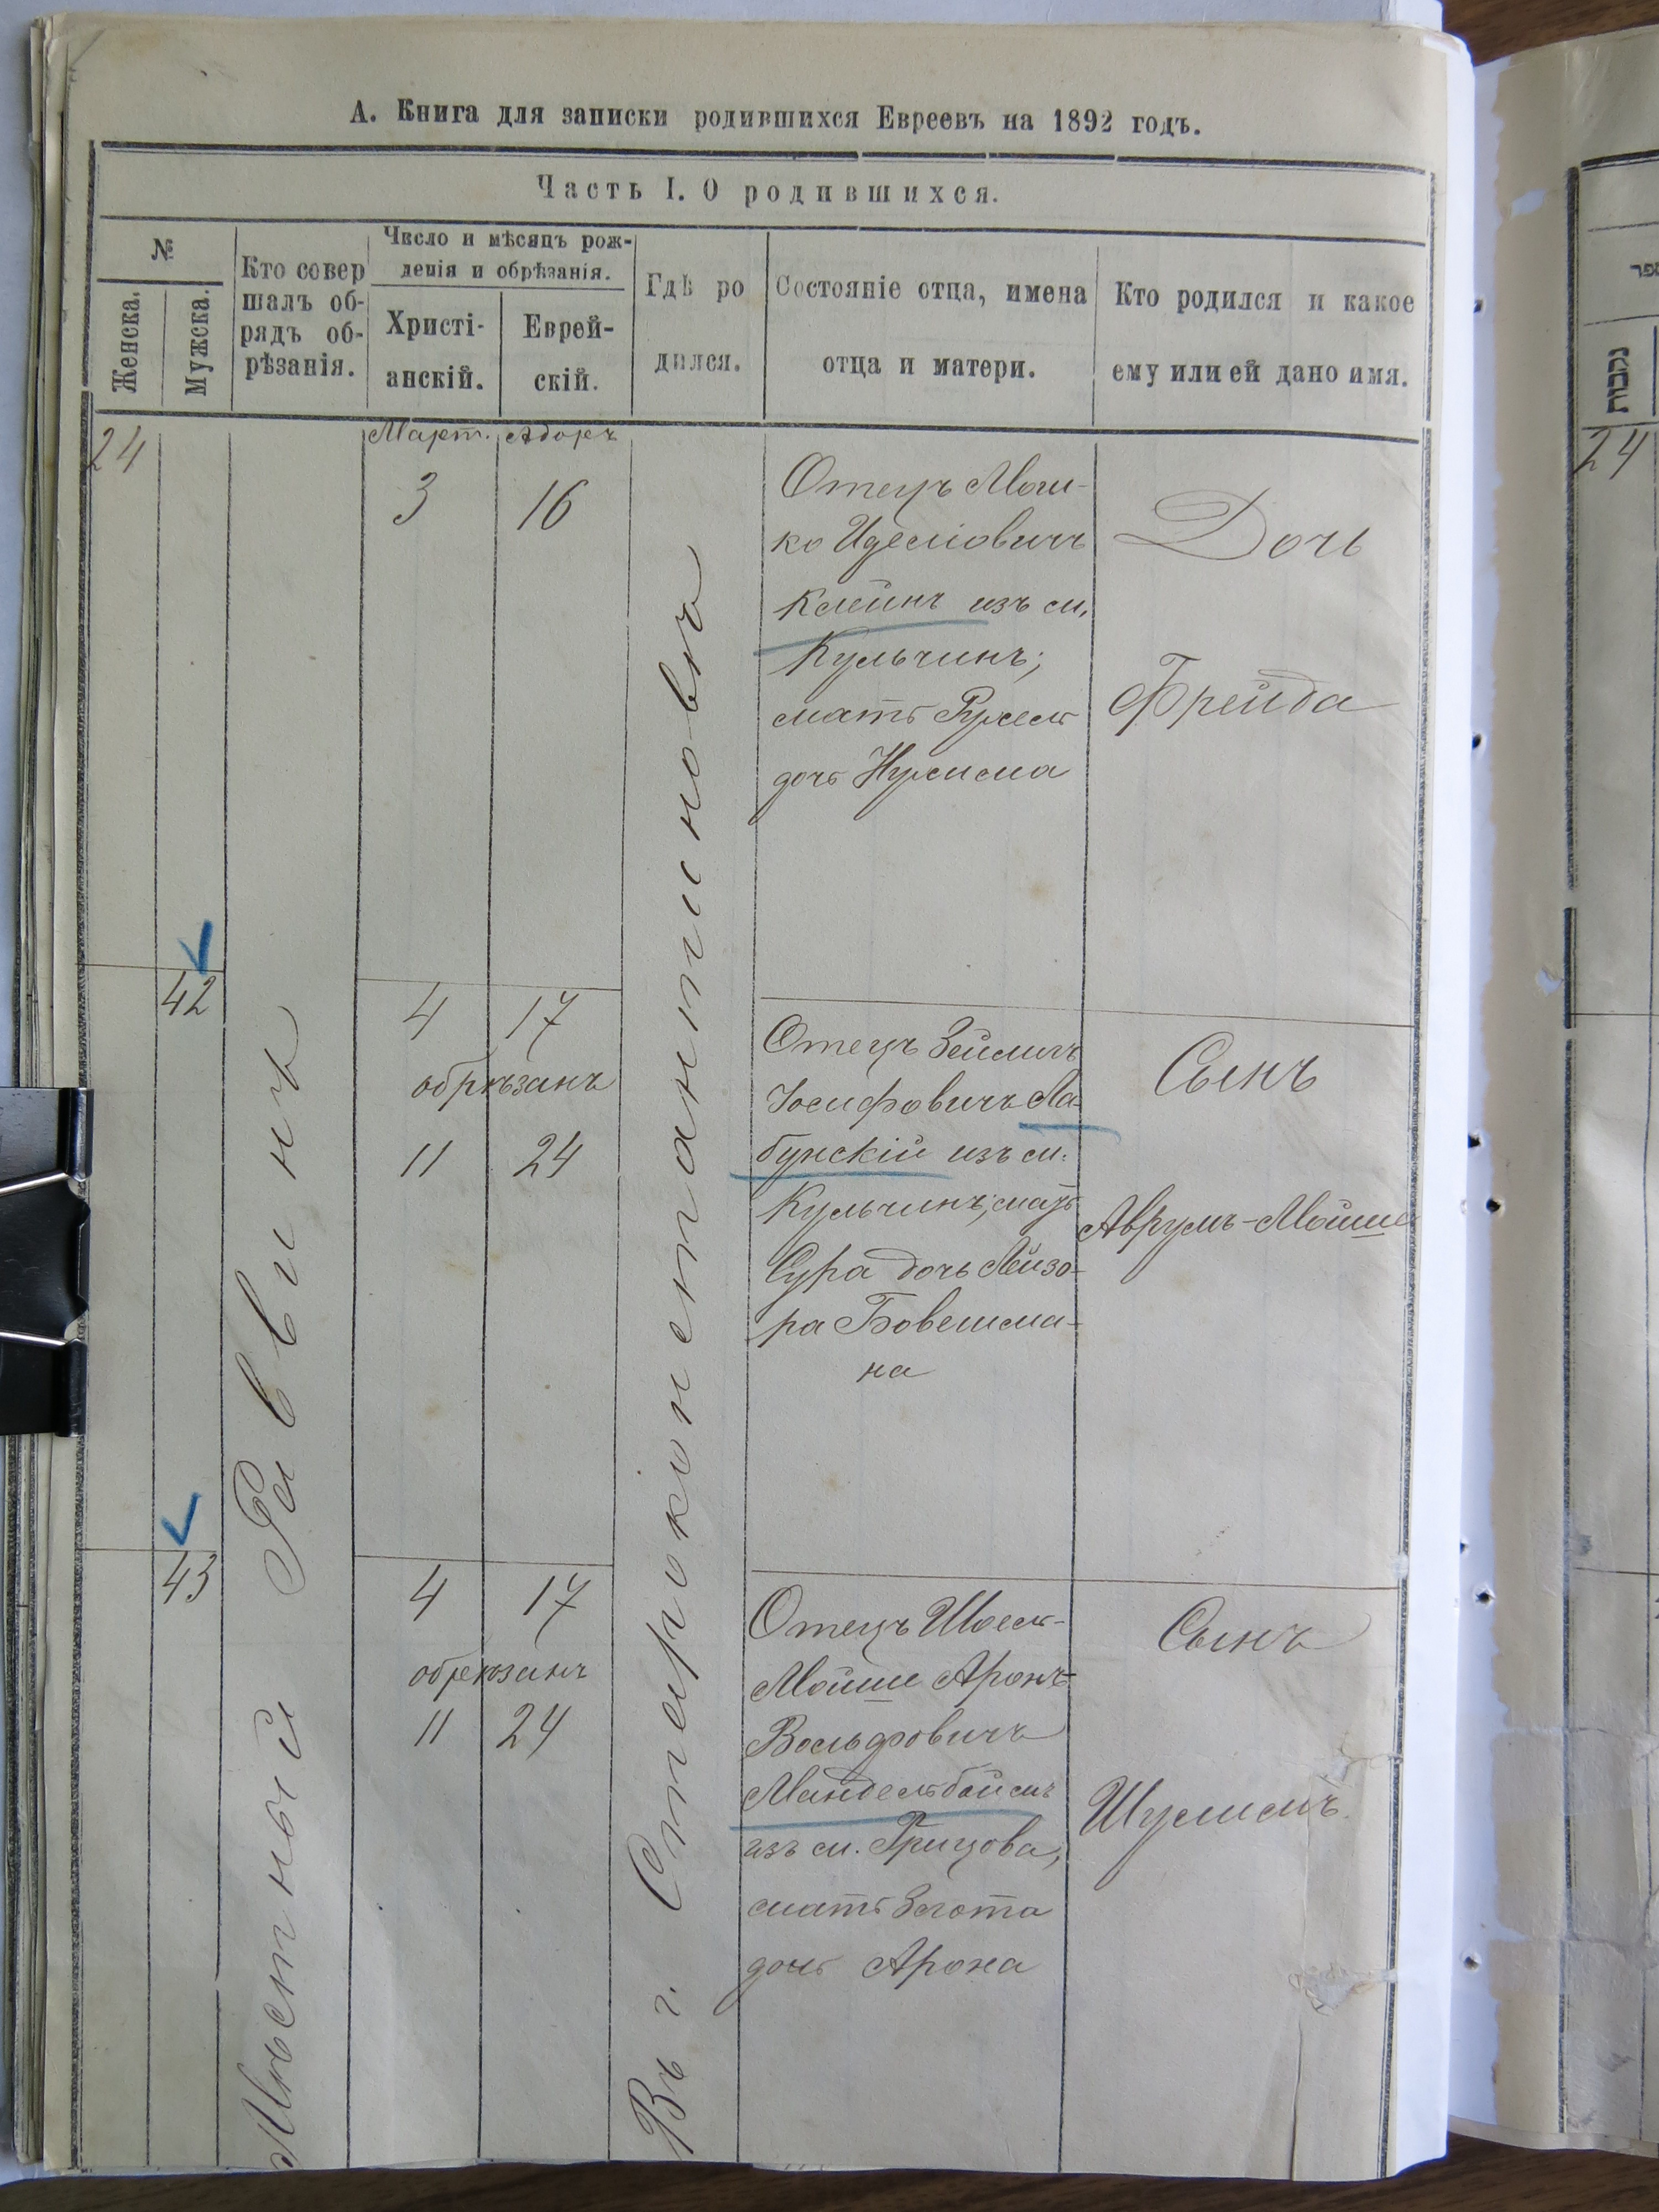 А. Книга для записки родившихся Евреевъ на 1892 годъ.
Часть I. О родившихся.
№
Женска.
Мужска.
Кто совер
шалъ об-
рядъ об-
рѣзанія.
Число и мѣсяцъ рож-
денія и обрѣзанія.
Христі-
анскій.
Еврей-
скій.
Гдѣ ро
дился.
Состояніе отца, имена
отца и матери.
Кто родился и какое
ему или ей дано имя.
Мѣстный Раввинъ
Въ г. Староконстантиновѣ
Март. Адаръ
24
3 16
Отецъ Мош-
ко
Клейнъ изъ м.
Кульчинъ;
мать Рухель
дочь Нухима
Дочь
Фрейда
42
4 17
обрѣзанъ
11 24
Отецъ Зейликъ
Іосифовичъ Ла-
бунскій изъ м.
Кульчинъ, мать
Сура дочь Лейзо-
ра Бовешма-
на
Сынъ
Аврумъ-Мойше
43
4 17
обрѣзанъ
11 24
Отецъ Шоель-
Мойше Аронъ-
Вольфовичъ
Мандельбаймъ
изъ м. Грицова,
мать Злота
дочь Арона
Сынъ
Шулимъ.
ספר
נקבות
24